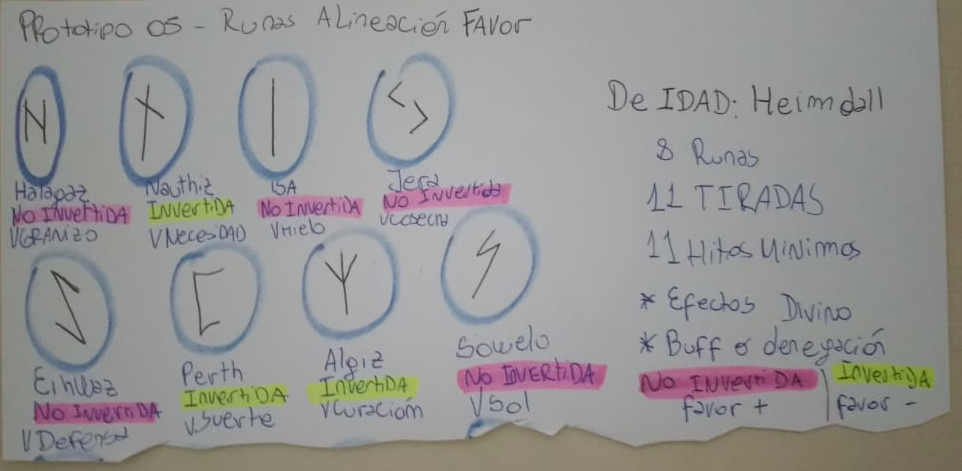 Prototipo 05 - Runas Alineación Favor
Halagaz
No InvertiDA
VGRANIZO
Nauthiz
InvertiDA
VNecesiDAD
ISA
No InvertiDA
VHielo
Jera
No Invertida
VCosecha
Eihwaz
No InvertiDA
VDefensa
Perth
InvertiDA
VSuerte
Algiz
InvertiDA
VCuración
Sowelo
No INVERTIDA
VSol
DeIDAD: Heimdall
8 Runas
11 TIRADAS
11 Hitos Mínimos
* Efectos Divino
* Buff o denegación
No InvertiDA
favor +
InvertiDA
favor -